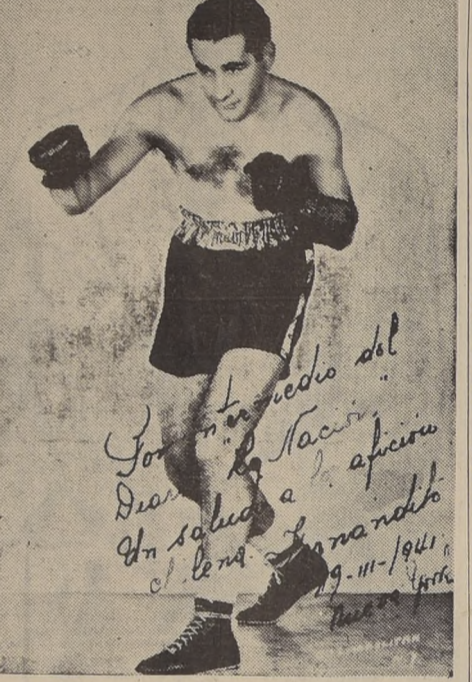 Por intermedio del
Diario "La Nación"
Un saludo a la afición
chilena Fernandito
19-III-1941.
Nueva York